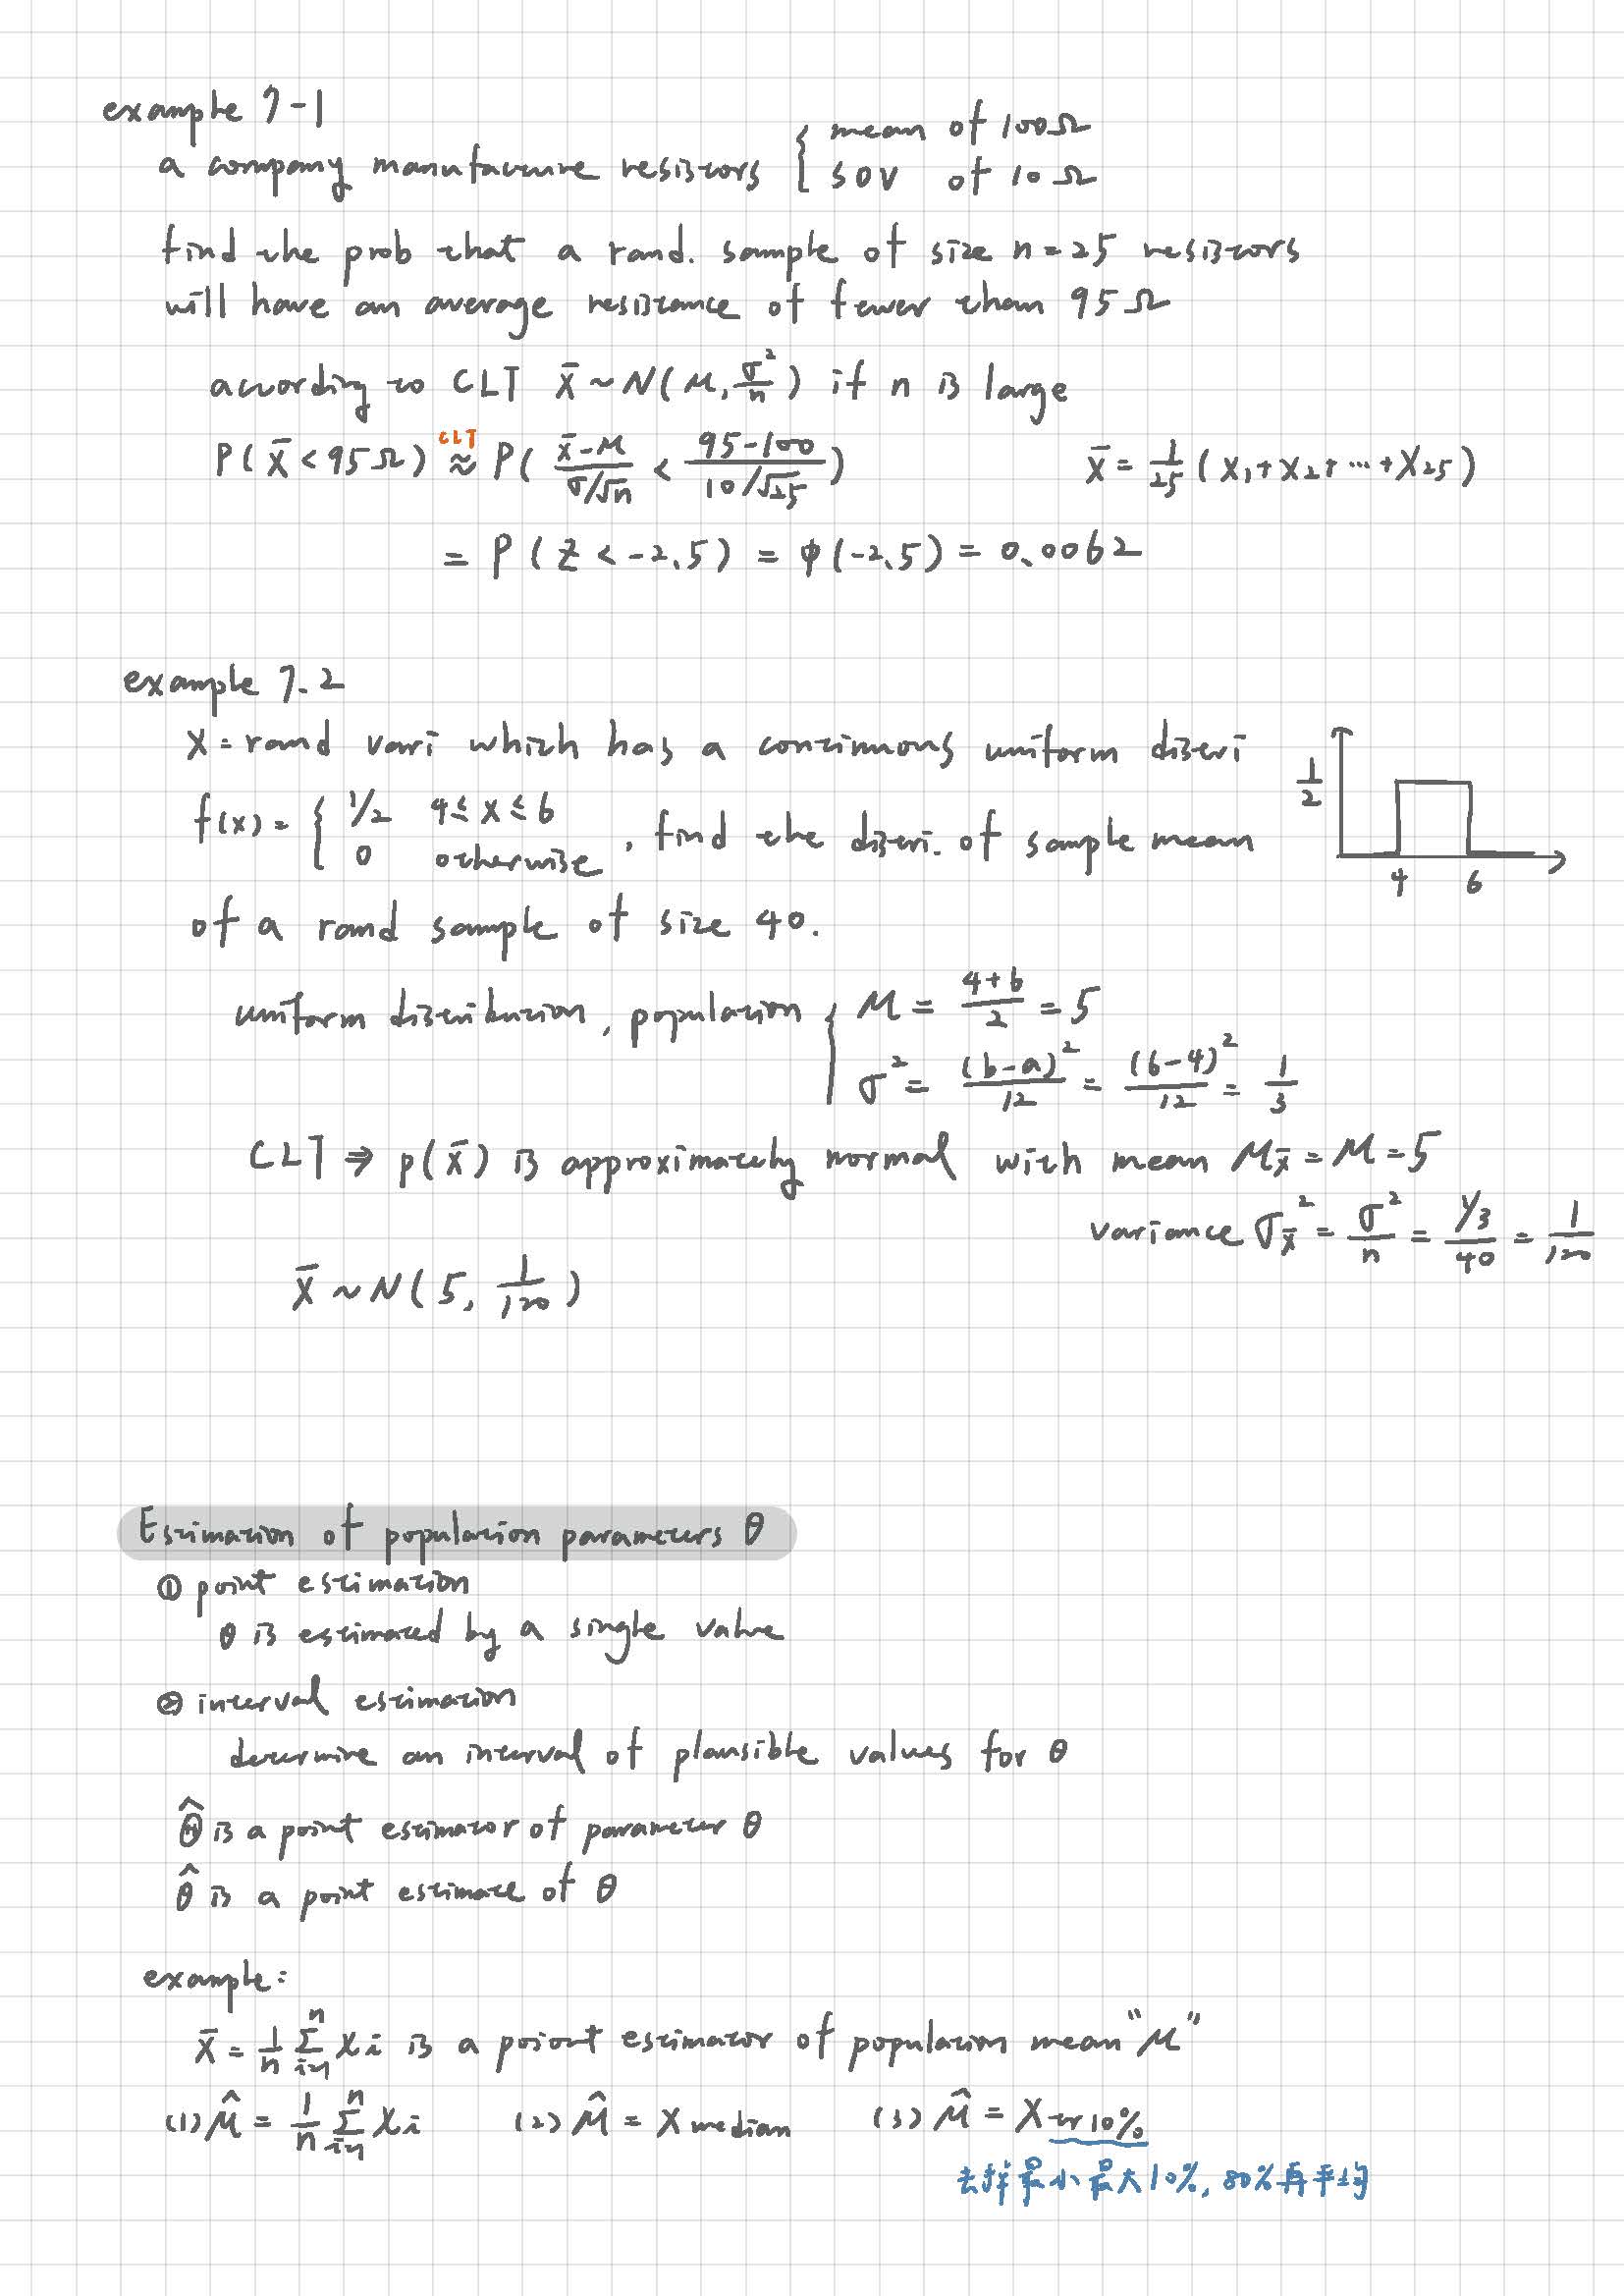 example 7-1
a company manufacture resistors { mean of 100Ω
SDV of 10Ω
find the prob that a rand. sample of size n=25 resistors
will have an average resistance of fewer than 95Ω
according to CLT X̄ ~ N(μ, σ²/n) if n is large
P(X̄ < 95Ω) ≈ P( (X̄-μ)/(σ/√n) < (95-100)/(10/√25) )
CLT
X̄ = 1/25 (X₁+X₂+…+X₂₅)
= P(Z < -2.5) = φ(-2.5) = 0.0062
example 7.2
X = rand vari which has a continuous uniform distri
f(x) = { 1/2 4≤x≤6
0 otherwise , find the distri. of sample mean
1/2
4 6
of a rand sample of size 40.
uniform distribution, population { μ = (4+6)/2 = 5
σ² = (b-a)²/12 = (6-4)²/12 = 1/3
CLT ⇒ p(X̄) is approximately normal with mean μx̄ = μ = 5
variance σx̄² = σ²/n = (1/3)/40 = 1/120
X̄ ~ N(5, 1/120)
Estimation of population parameters θ
① point estimation
θ is estimated by a single value
② interval estimation
determine an interval of plausible values for θ
Θ̂ is a point estimator of parameter θ
θ̂ is a point estimate of θ
example:
X̄ = 1/n Σⁿᵢ₌₁ Xi is a poiont estimator of population mean "μ"
(1) μ̂ = 1/n Σⁿᵢ₌₁ Xi (2) μ̂ = X median (3) μ̂ = X tr 10%
去掉最小最大10%, 80%再平均